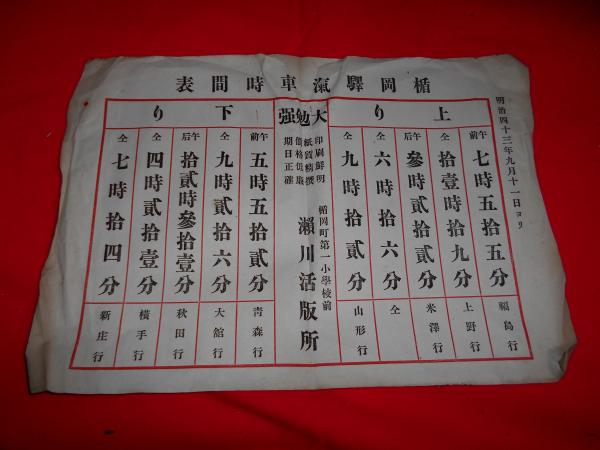 楯岡驛滊車時間表
明治四十三年九月十一日ヨリ
上り
午前 七時五拾五分 福島行
仝 拾壹時拾九分 上野行
午后 參時貳拾貳分 米澤行
仝 六時拾六分 仝
仝 九時拾貳分 山形行
大勉强
印刷鮮明
紙質精撰
價格低廉
期日正確
楯岡町第一小學校前
瀨川活版所
下り
午前 五時五拾貳分 青森行
仝 九時貳拾六分 大舘行
午后 拾貳時參拾壹分 秋田行
仝 四時貳拾壹分 橫手行
仝 七時拾四分 新庄行